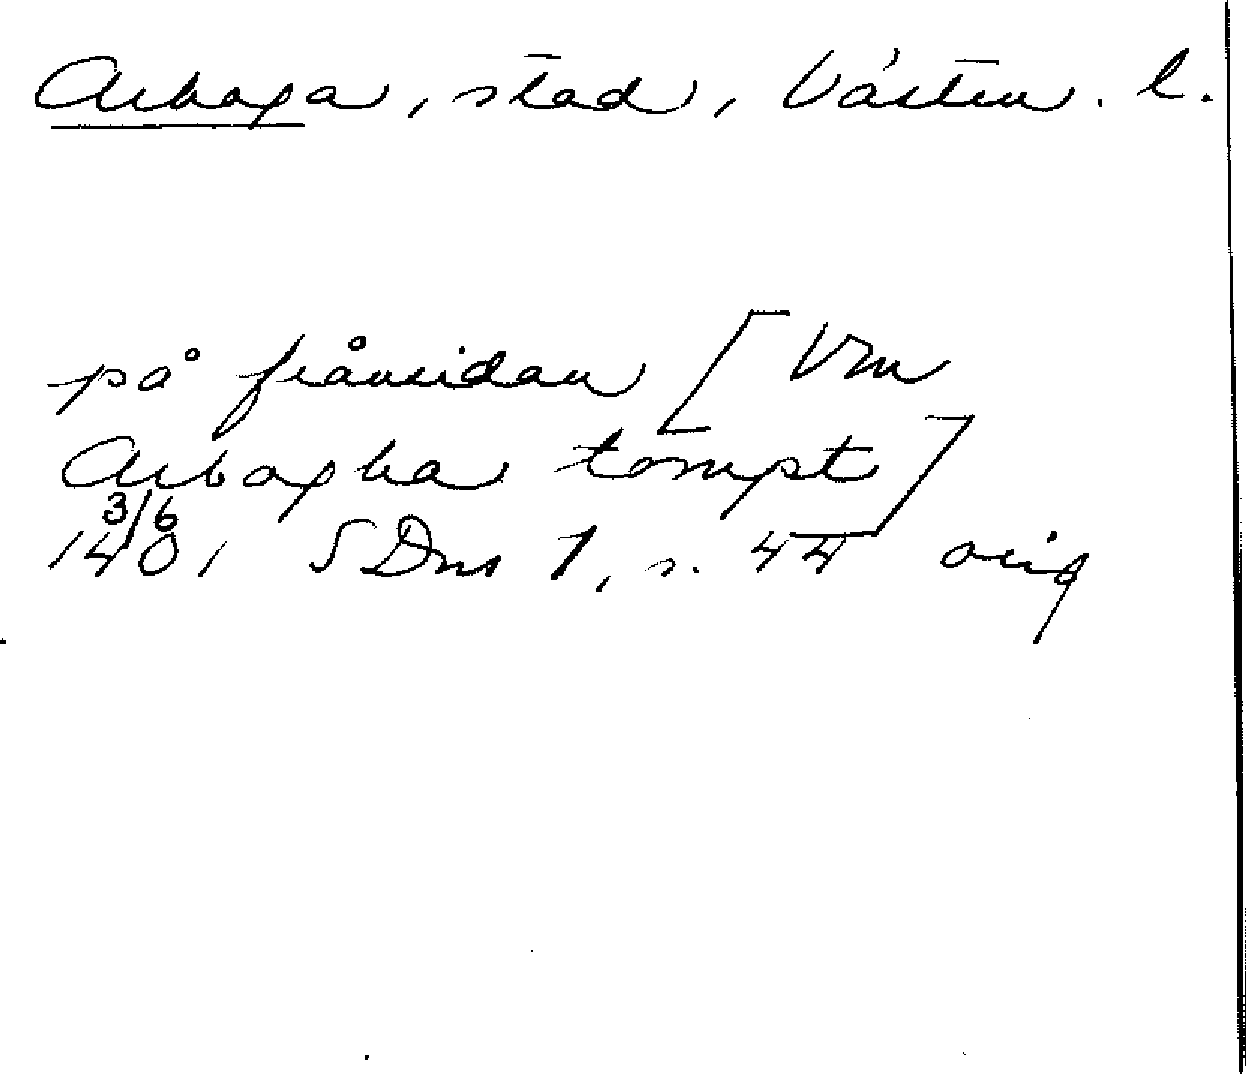 Arboga, stad, Västm. l.
på frånsidan [Vm
Arbogha tompt]
3/6
1401 SDns 1, s. 44 orig